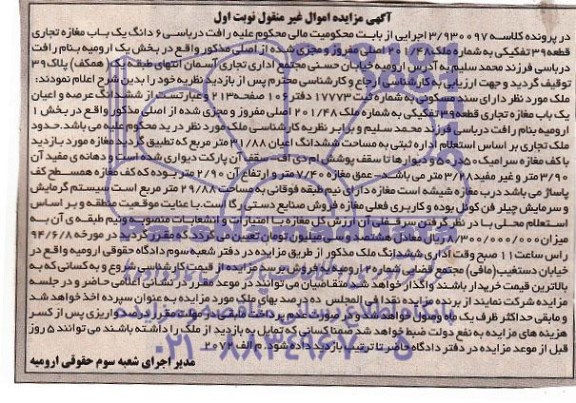 آگهی مزایده اموال غیر منقول نوبت اول
در پرونده کلاسه ۳/۹۳۰۰۹۷ اجرایی از بابت محکومیت مالی محکوم علیه رافت درباسی ۶ دانگ یک باب مغازه تجاری
قطعه ۳۹ تفکیکی به شماره ملک ۲۰۱/۴۸ اصلی مفروز و مجزی شده از اصلی مذکور واقع در بخش یک ارومیه بنام رافت
درباسی فرزند محمد سلیم به آدرس ارومیه خیابان حسنی مجتمع اداری تجاری آسمان انتهای طبقه یک (همکف) پلاک ۳۹
توقیف گردید و جهت ارزیابی به کارشناسی ارجاع و کارشناسی محترم پس از بازدید نظریه خود را بدین شرح اعلام نمودند:
ملک مورد نظر دارای سند مسکونی به شماره ثبت ۱۷۷۷۳ دفتر ۱۰۶ صفحه ۲۱۳ و عبارتست از ششدانگ عرصه و اعیان
یک باب مغازه تجاری قطعه ۳۹ تفکیکی به شماره ملک ۲۰۱/۴۸ اصلی مفروز و مجزی شده از اصلی مذکور واقع در بخش ۱
ارومیه بنام رافت درباسی فرزند محمد سلیم و برابر نظریه کارشناسی ملک مورد نظر در ید محکوم علیه می باشد. حدود
ملک تجاری بر اساس استعلام اداره ثبتی به مساحت ششدانگ اعیان ۳۱/۸۸ متر مربع که تطبیق گردید مغازه مورد بازدید
با کف مغازه سرامیک ۵۰در۵۰ و دیوارها تا سقف پوشش ام دی اف – سقف آن پارکت دیواری شده است و دهنه ی مفید آن
۳/۹۰ متر و غیر مفید ۳/۲۸ متر می باشد – عمق مغازه ۷/۴۰ متر و ارتفاع آن ۲/۹۰ متر بوده که کف مغازه همسطح کف
پاساژ می باشد درب مغازه شیشه است مغازه دارای نیم طبقه فوقانی به مساحت ۲۹/۸۸ متر مربع است سیستم گرمایش
و سرمایش چیلر فن کوئل بوده و کاربری فعلی مغازه فروش صنایع دستی پگا است. با عنایت موقعیت منطقه و بر اساس
استعلام محلی با در نظر گرفتن سرقفلی آن ارزش کل مغازه با امتیازات و انشعابات منصوبه ونیم طبقه ی آن به
میزان ۸/۳۰۰/۰۰۰/۰۰۰ ریال معادل هشتصد و سی میلیون تومان تعیین می گردد که مقرر گردید در مورخه ۹۴/۶/۸
راس ساعت ۱۱ صبح وقت اداری ششدانگ ملک مذکور از طریق مزایده در دفتر شعبه سوم دادگاه حقوقی ارومیه واقع در
خیابان دستغیب (مافی) مجتمع قضایی شماره ۲ ارومیه به فروش برسد مزایده از قیمت کارشناسی شروع و به کسانی که به
بالاترین قیمت خریدار باشند واگذار خواهد شد متقاضیان می توانند در موعد مقرر در نشانی اعلامی حاضر و در جلسه
مزایده شرکت نمایند از برنده مزایده نقدا فی المجلس ده درصد بهای ملک مورد مزایده به عنوان سپرده اخذ خواهد شد
و مابقی حداکثر ظرف یک ماه وصول خواهد شد و در صورت عدم پرداخت مابقی در مهلت مقرر ده درصد واریزی پس از کسر
هزینه های مزایده به نفع دولت ضبط خواهد شد ضمنا کسانی که تمایل به بازدید از ملک را داشته باشند می توانند ۵ روز
قبل از موعد مزایده در دفتر دادگاه حاضر تا ترتیب بازدید داده شود. م الف ۲۰۷۲
مدیر اجرای شعبه سوم حقوقی ارومیه